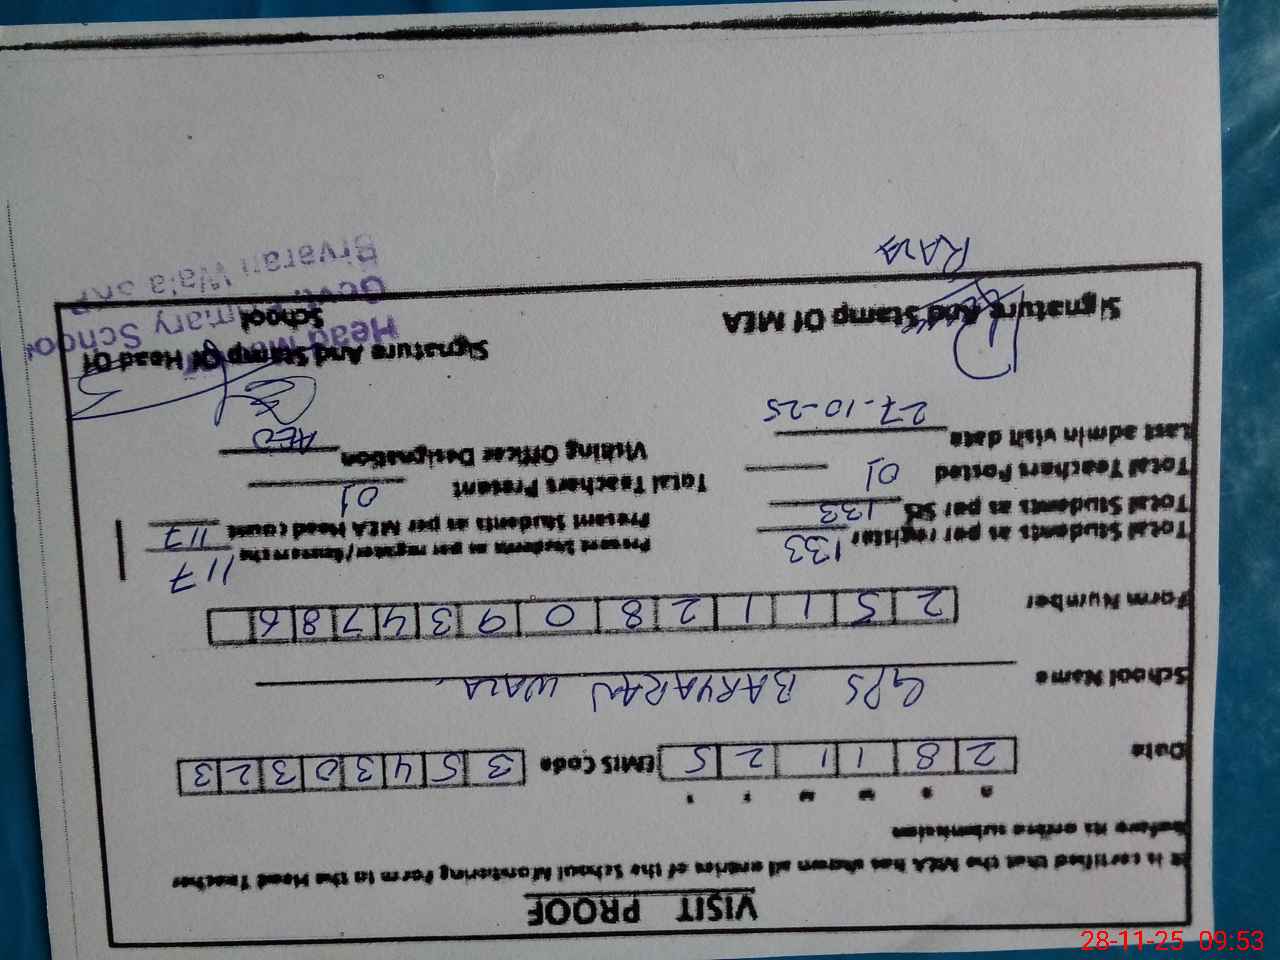 VISIT PROOF
It is certified that the MEA has shown all entries of the School Monitoring Form to the Head Teacher
before its online submission
Date 2 8 1 1 2 5 EMIS Code 3 5 4 3 0 3 2 3
School Name GPS BARYARAN WALA.
Form Number 2 5 1 1 2 8 0 9 3 4 7 8 6
Total Students as per register 133 Present Students as per register/Answers the 117
Total Students as per SIS 133 Present Students as per MEA Head count 117
Total Teachers Posted 01 Total Teachers Present 01
Last admin visit date 27-10-25 Visiting Officer Designation AEO
Signature And Stamp Of MEA Signature And Stamp Of Head Of
School
Head
Govt. Primary School
Bryaran Wala
RAZA
28-11-25 09:53